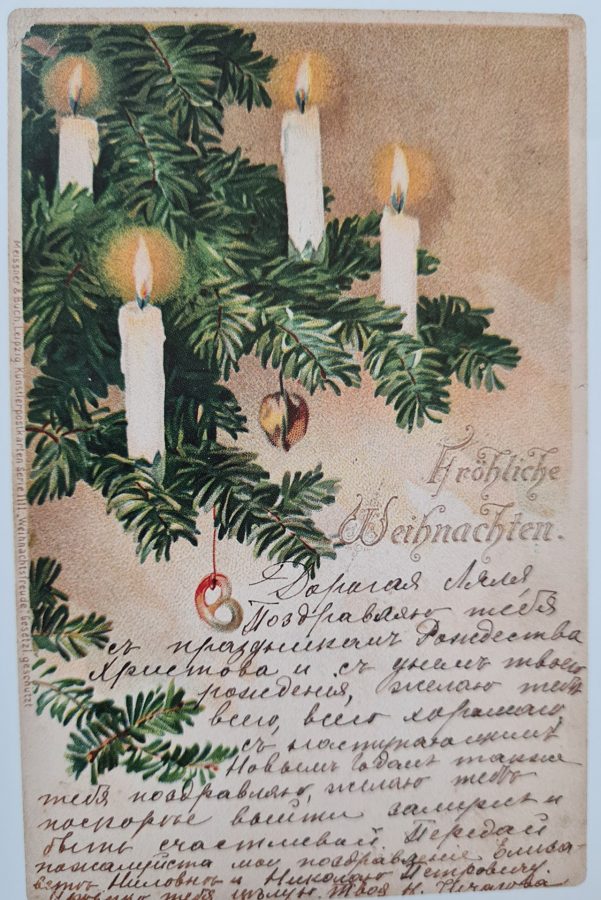 Meissner & Buch, Leipzig, Künstlerpostkarten Serie Weihnachtsfreude. Gesetzl. geschützt.
Fröhliche
Weihnachten.
Дорогая Ляля,
Поздравляю тебя
съ праздникамъ Рождества
Христова и съ днемъ твоего
рождения, желаю тебѣ
всего, всего хорошаго,
съ наступающимъ
Новымъ годомъ также
тебя поздравляю, желаю тебѣ
поскорѣе выйти замужъ и
быть счастливой. Передай
пожалуйста мои поздравления Елиза-
ветѣ Ниловнѣ и Николаю Петровичу.
тебя цѣлую. Твоя Н.